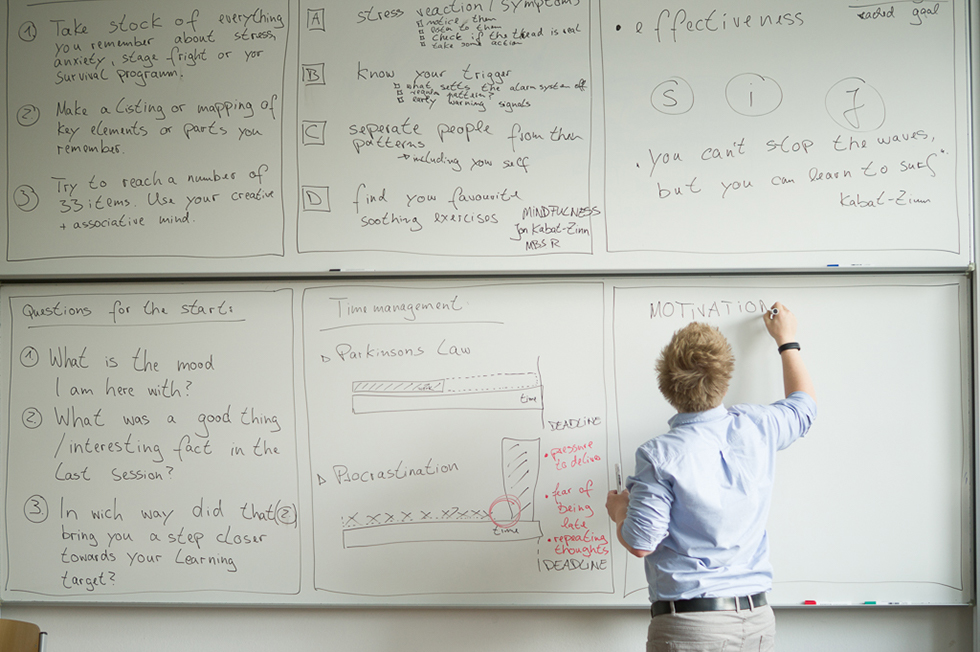 1 Take stock of everything
you remember about stress,
anxiety, stage fright or yor
survival programm.
2 Make a listing or mapping of
key elements or parts you
remember.
3 Try to reach a number of
33 items. Use your creative
+ associative mind.
A stress reaction / symptoms
notice them
listen to them
check if the thread is real
take some action
B know your trigger
what setts the alarm system off
early warning signals
C seperate people from them
patterns
→ including your self
D find your favourite
soothing exercises
MINDFULNESS
Jon Kabat-Zinn
MBSR
reached goal
• effectiveness
S i J
• "you can't stop the waves,
but you can learn to surf".
Kabat-Zinn
Questions for the start:
1 What is the mood
I am here with?
2. What was a good thing
/interesting fact in the
last session?
3. In wich way did that (2)
bring you a step closer
towards your learning
target?
Time management.
Parkinsons Law
time
DEADLINE
Procrastination
time
• pressure
to deliver
• fear of
being
late
• repeating
thoughts
DEADLINE
MOTIVATION